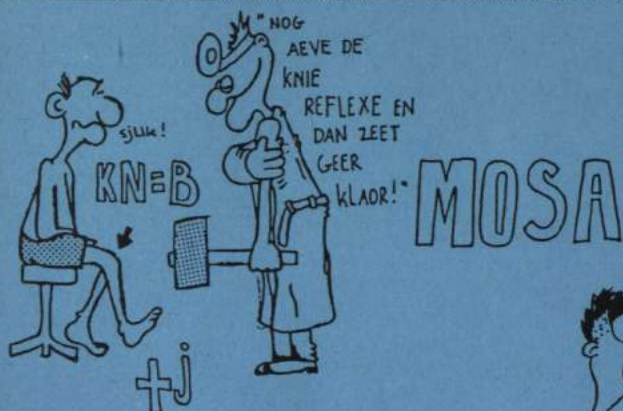 "NOG
AEVE DE
KNIE
REFLEXE EN
DAN ZEET
GEER
KLAOR!"
sjlik!
KN=B
MOSA
+j